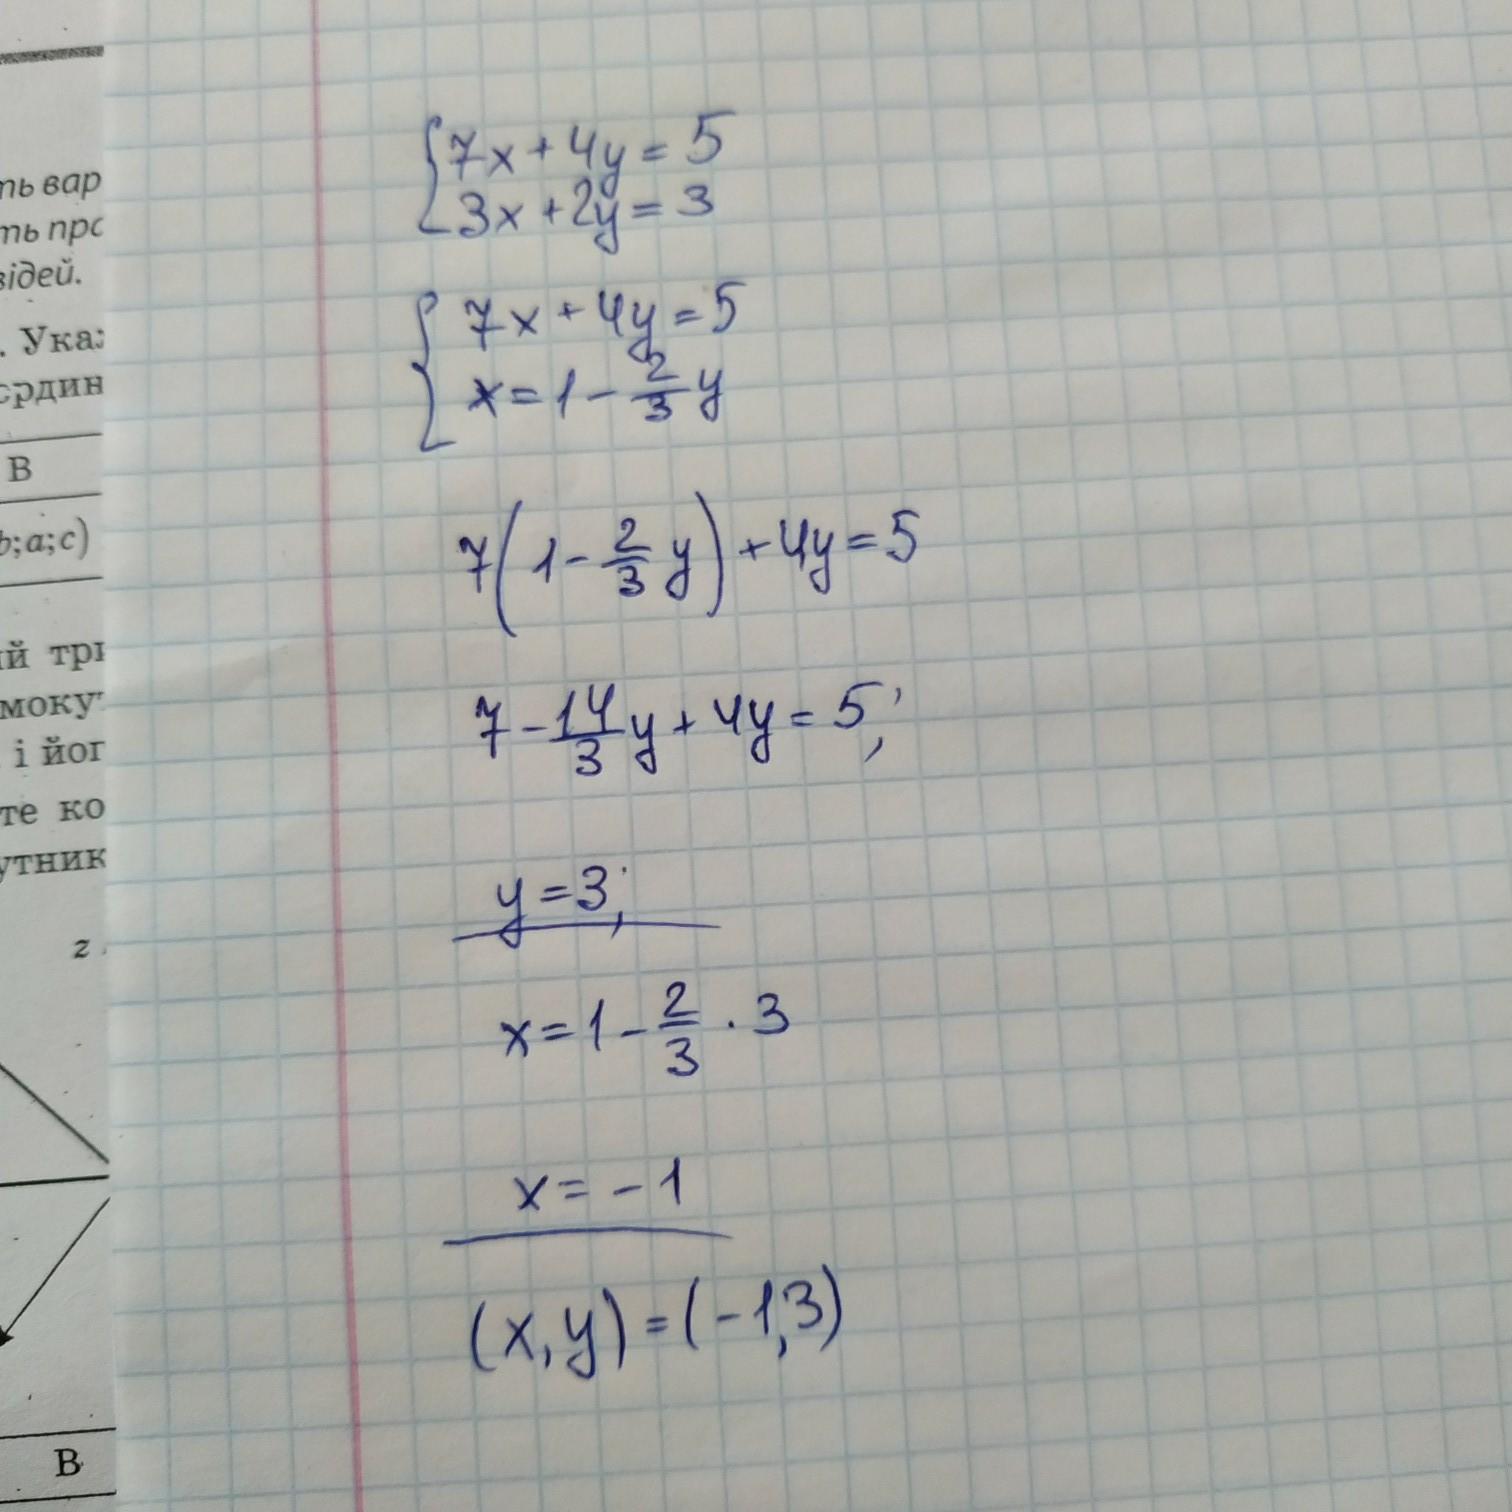 ть вар
ть про
відей.
. Ука
рдин
В
b;a;c)
ий
моку
і йог
те ко
утник
z
В
{7x+4y=5
3x+2y=3
{7x+4y=5
x=1-2/3y
7(1-2/3y)+4y=5
7-14/3y+4y=5;
y=3;
x=1-2/3·3
x=-1
(x,y)=(-1,3)